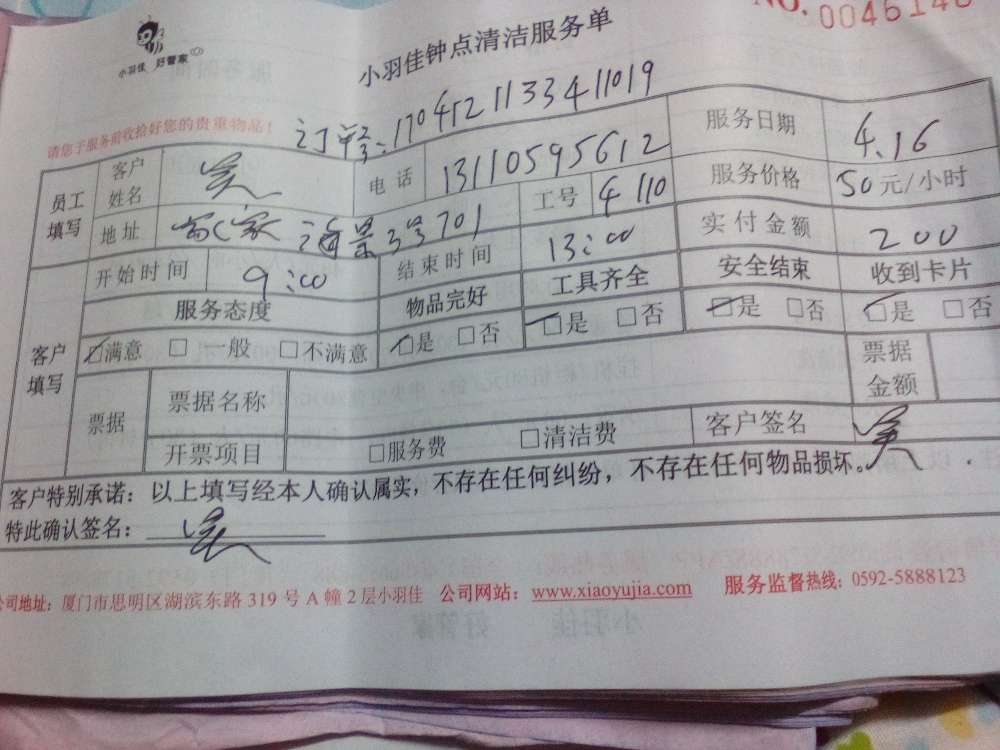 NO. 0046146
小羽佳 好管家
小羽佳钟点清洁服务单
请您于服务前收拾好您的贵重物品!
订单:170412113341​1019
员工填写 客户姓名 吴 电话 13110595612 服务日期 4.16
地址 海景3号701 工号 4110 服务价格 50元/小时
客户填写 开始时间 9:00 结束时间 13:00 实付金额 200
服务态度 物品完好 工具齐全 安全结束 收到卡片
☑满意 □一般 □不满意 ☑是 □否 ☑是 □否 ☑是 □否 ☑是 □否
票据 票据名称 票据金额
开票项目 □服务费 □清洁费 客户签名 吴
客户特别承诺:以上填写经本人确认属实,不存在任何纠纷,不存在任何物品损坏。
特此确认签名: 吴
公司地址:厦门市思明区湖滨东路 319 号 A 幢 2 层小羽佳 公司网站:www.xiaoyujia.com 服务监督热线:0592-5888123